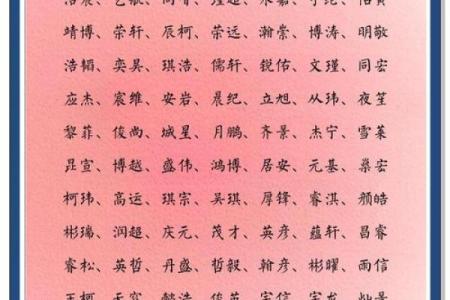 靖博、荣轩、辰柯、荣远、瀚崇、博涛、明敬
浩韬、奕昊、琪浩、儒轩、锐佑、文瑾、同宏
应杰、宸维、安岩、晨纪、立旭、从玮、夜笙
黎菲、俊尚、城星、月鹏、齐景、杰宁、雪莱
昆宣、博越、盛伟、鸿博、居安、元基、燊宏
柯玮、高运、琪宗、吴琪、厚锋、睿淇、颜皓
彬瑞、润超、庆元、茂才、英彦、蕴轩、昌睿
睿松、英哲、丹盛、哲毅、翰彦、彬曜、雨信